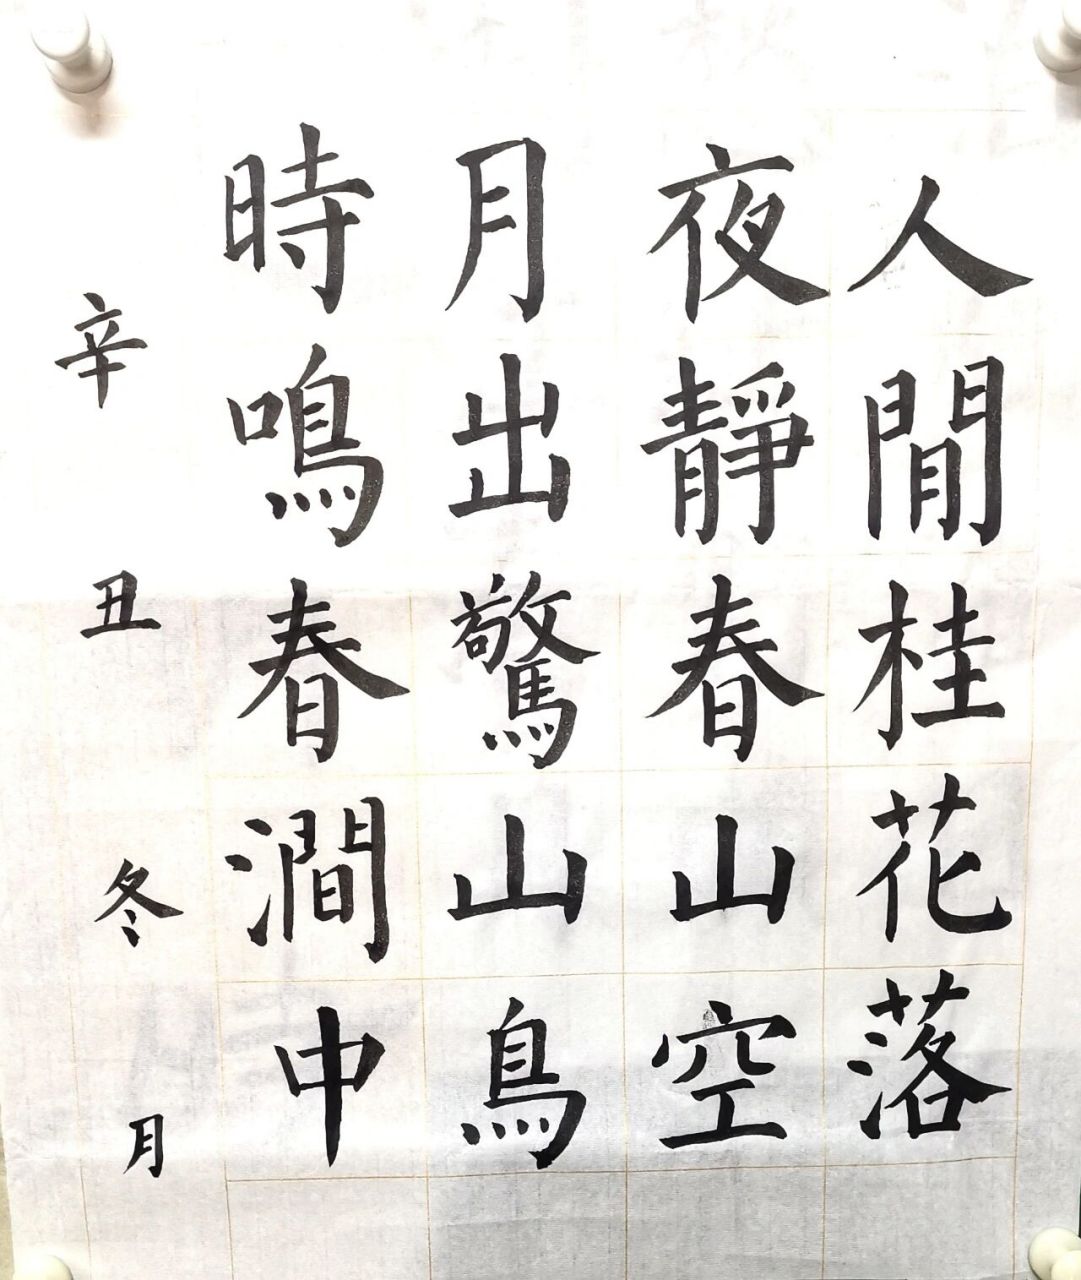 人閒桂花落
夜靜春山空
月出驚山鳥
時鳴春澗中
辛丑冬月